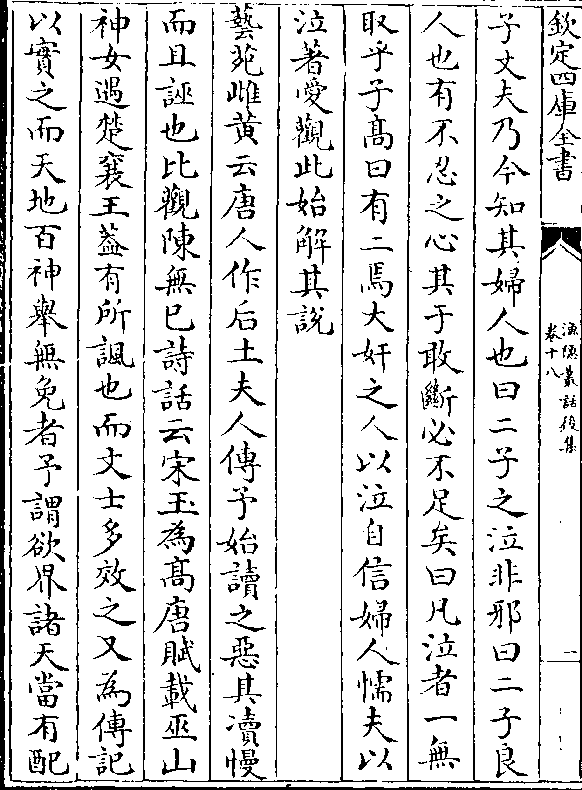 欽定四庫全書
漁隱叢話後集
卷十八
一
子丈夫乃今知其婦人也曰二子之泣非邪曰二子良
人也有不忍之心其于敢斷必不足矣曰凡泣者一無
取乎子高曰有二焉大奸之人以泣自信婦人懦夫以
泣著愛觀此始解其說
藝苑雌黃云唐人作后土夫人傳予始讀之惡其瀆慢
而且誣也比觀陳無已詩話云宋玉為高唐賦載巫山
神女遇楚襄王蓋有所諷也而文士多效之又為傳記
以實之而天地百神舉無免者予謂欲界諸天當有配